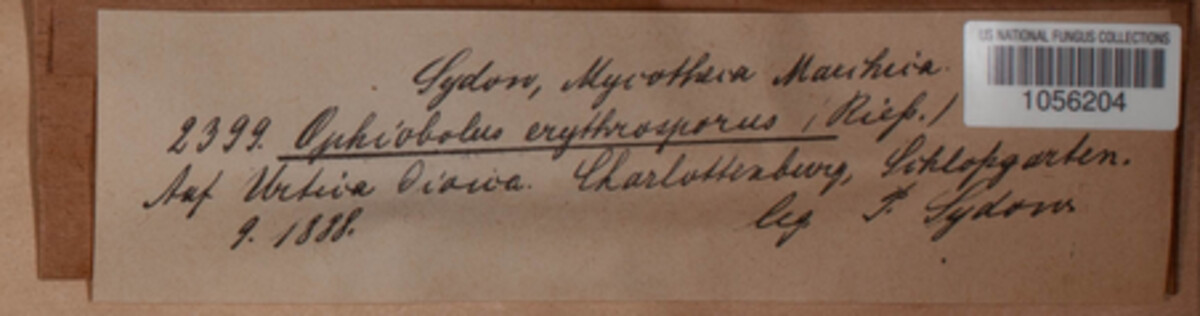 Sydow, Mycotheca Marchica.
US NATIONAL FUNGUS COLLECTIONS
1056204
2399. Ophiobolus erythrosporus (Rieß.)
Auf Urtica dioica. Charlottenburg, Schloßgarten.
9. 1888. leg P. Sydow.